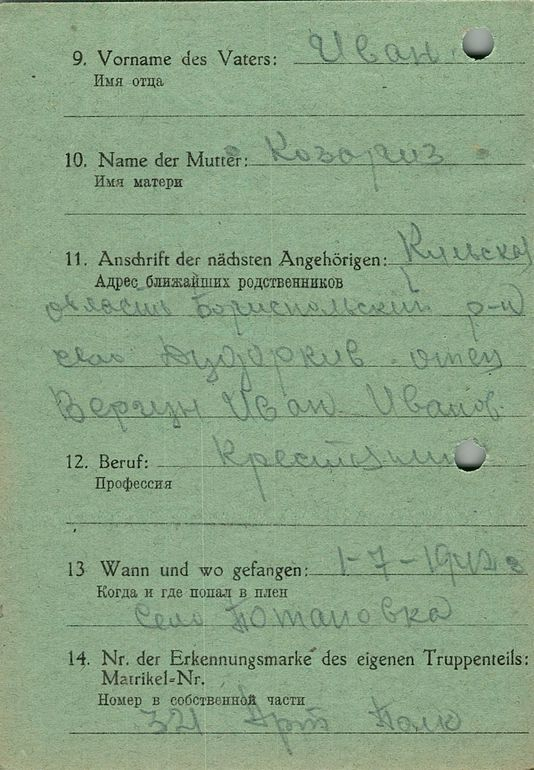 9. Vorname des Vaters: Иван
Имя отца
10. Name der Mutter: Козориз
Имя матери
11. Anschrift der nächsten Angehörigen:
Адрес ближайших родственников
область Бориспольский р-н
село отец
Вергун Иван Иванов.
12. Beruf: Крестьянин
Профессия
13 Wann und wo gefangen: 1-7-1942 г
Когда и где попал в плен
Село Потаповка
14. Nr. der Erkennungsmarke des eigenen Truppenteils:
Matrikel=Nr.
Номер в собственной части
321 Арт Полк